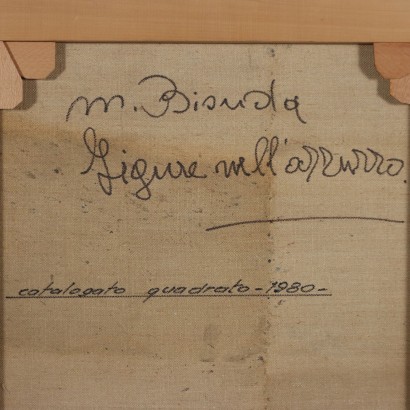 m. Bisuda
Figure nell'azzurro.
catalogato quadrato - 1980 -